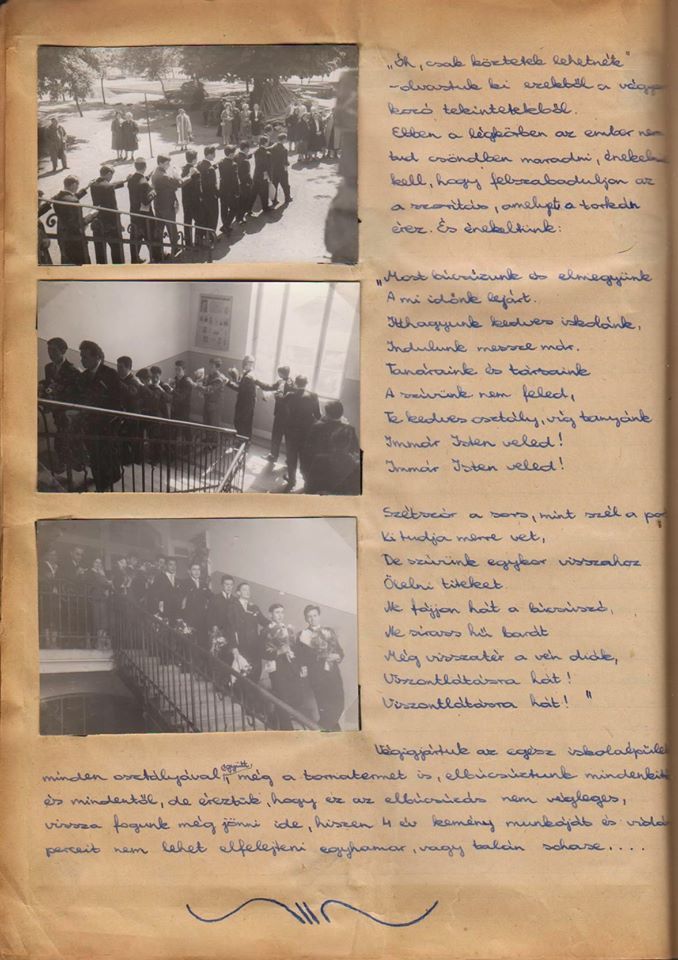 „Óh, csak köztetek lehetnék"
-olvastuk ki ezekből a vágya
kozó tekintetekből.
Ebben a légkörben az ember nem
tud csöndben maradni, énekelni
kell, hogy felszabaduljon az
a szorítás, amelyet a torkán
érez. És énekeltünk:
„Most búcsúzunk és elmegyünk
A mi időnk lejárt.
Itthagyunk kedves iskolánk,
Indulunk messze már.
Tanáraink és társaink
A szívünk nem feled,
Te kedves osztály, víg tanyánk
Immár Isten veled!
Immár Isten veled!
Szétszór a sors, mint szél a por
Ki tudja merre vet,
De szívünk egykor visszahoz
Ölelni titeket.
Ne fájjon hát a búcsúszó,
Ne sirass hű barát
Még visszatér a vén diák,
Viszontlátásra hát!
Viszontlátásra hát!"
Végigjártuk az egész iskolaépület
minden osztályával együtt, még a tornatermet is, elbúcsúztunk mindenkitől
és mindentől, de éreztük, hogy ez az elbúcsúzás nem végleges,
vissza fogunk még jönni ide, hiszen 4 év kemény munkáját és vidám
perceit nem lehet elfelejteni egyhamar, vagy talán sohase....